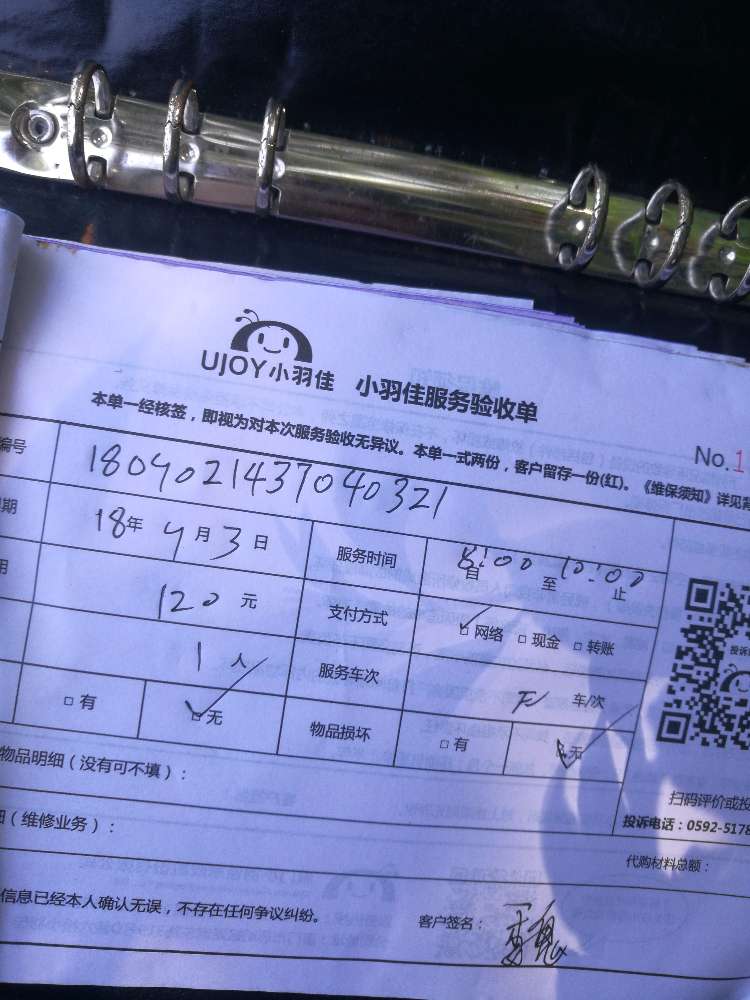 UJOY小羽佳 小羽佳服务验收单
本单一经核签，即视为对本次服务验收无异议。本单一式两份，客户留存一份(红)。《维保须知》详见背
No.1
编号 1804021437040321
期 18年 4月 3日 服务时间 自8:00 至10:00止
用 120元 支付方式 □网络 □现金 □转账
1人 服务车次 车/次
□有 □无 物品损坏 □有 □无
物品明细（没有可不填）：
扫码评价或投
投诉电话：0592-5178
（维修业务）：
代购材料总额：
信息已经本人确认无误，不存在任何争议纠纷。
客户签名：